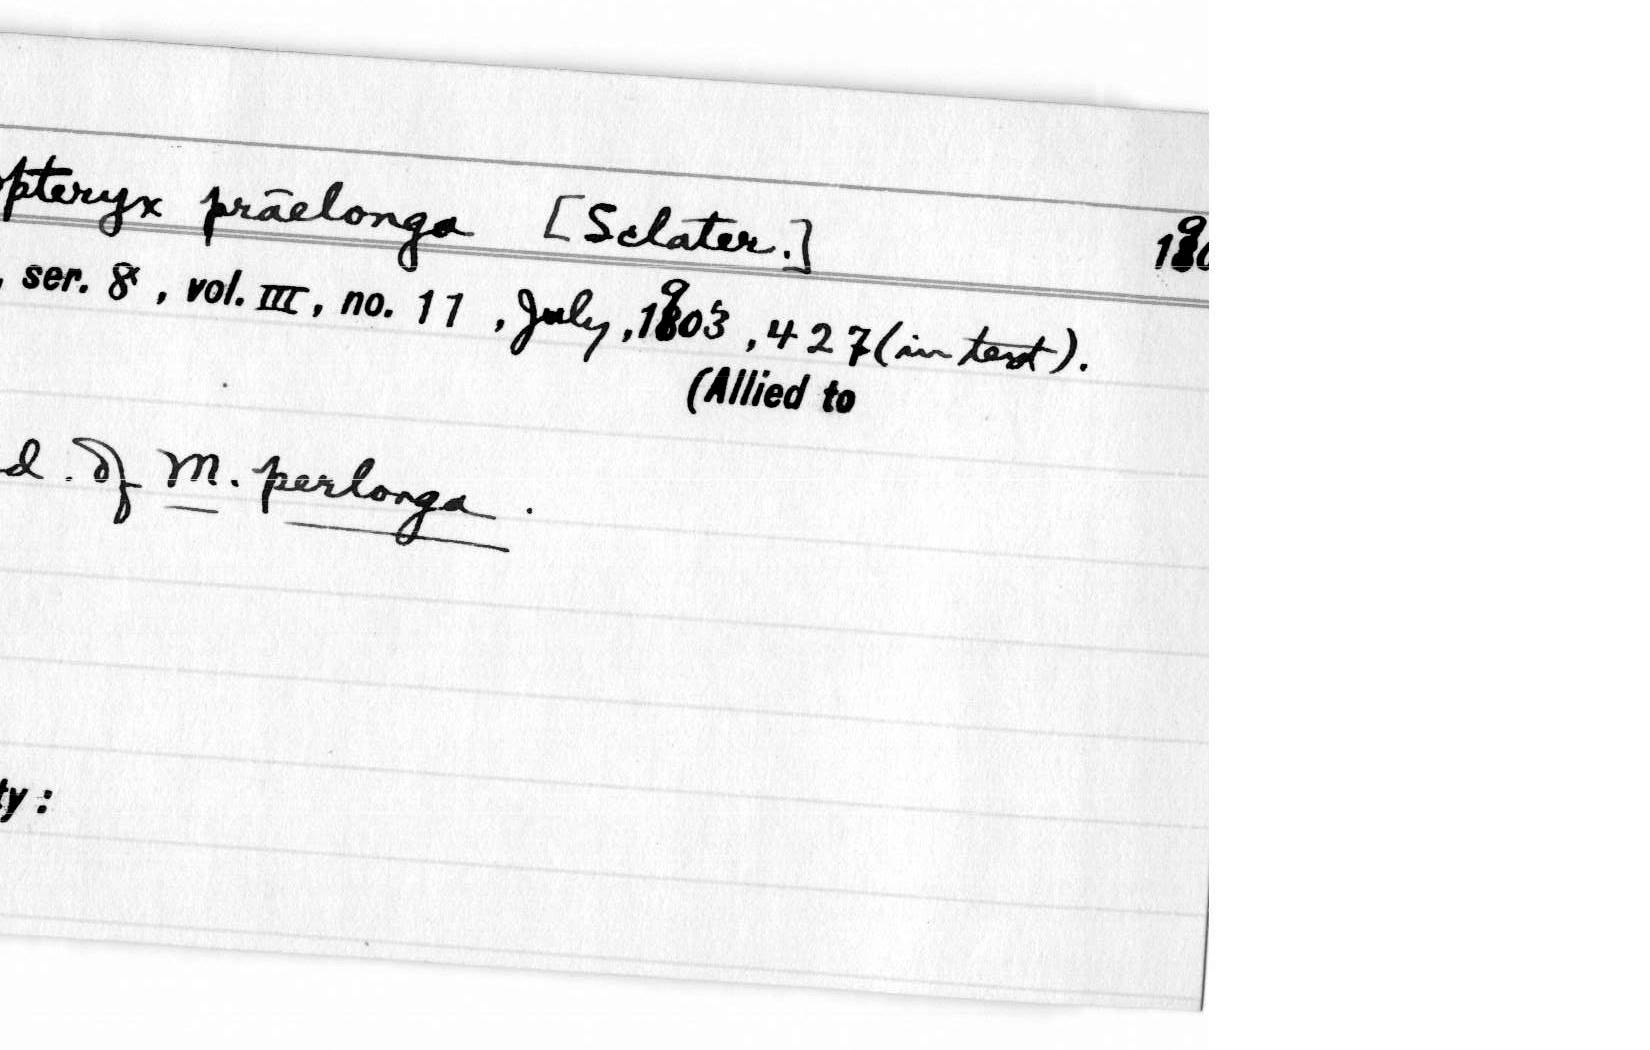 opteryx prāelonga [Sclater.] 190
, ser. 8, vol. III, no. 11, July, 1903, 427 (in text).
(Allied to
d. of M. perlonga.
ty: